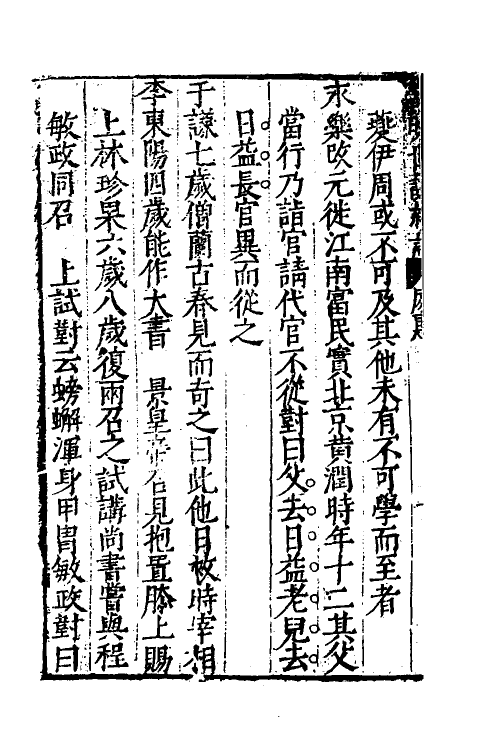 夔伊周或不可及其他未有不可學而至者
永樂改元徙江南富民實北京黄潤時年十二其父
當行乃詣官請代官不從對曰父去日益老兒去
日益長官異而從之
于謙七歲僧蘭古春見而奇之曰此他日救時宰相
李東陽四歲能作大書　景皇帝召見抱置膝上賜
上林珍果六歲八歲復兩召之試講尚書嘗與程
敏政同召　上試對云螃蠏渾身甲冑敏政對曰